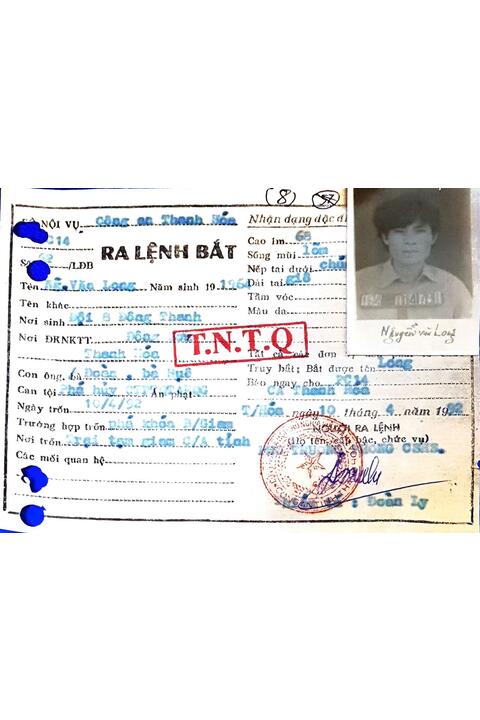 (8) 57
BỘ NỘI VỤ Công an Thanh Hóa
PC14
Số 62 /LĐB
RA LỆNH BẮT
Tên Ng. Văn Long Năm sinh 1964
Tên khác
Nơi sinh Đội 8 Đông Thanh
Nơi ĐRNKTT Đông
Thanh Hóa
T.N.T.Q
Con ông, bà Đoàn , bà Huê
Can tội Phá hủy Án phạt
Ngày trốn 10/4/92
Trường hợp trốn phá khóa B/Giam
Nơi trốn Trại tạm giam C/A tỉnh
Các mối quan hệ
Nhận dạng đặc đi
Cao 1m 68
Sống mũi lõm
Nếp tai dưới
Dái tai
Tầm vóc
Màu da
Nguyễn văn Long
Tất cả các đơn vị
Truy bắt; Bắt được tên Long
Báo ngay cho PC14
CA Thanh Hóa
T/Hóa ngày 10 tháng 4 năm 1992
NGƯỜI RA LỆNH
(Họ tên, cấp bậc, chức vụ)
PHÓ TRƯỞNG PHÒNG CSHS.
: Đoàn Ly